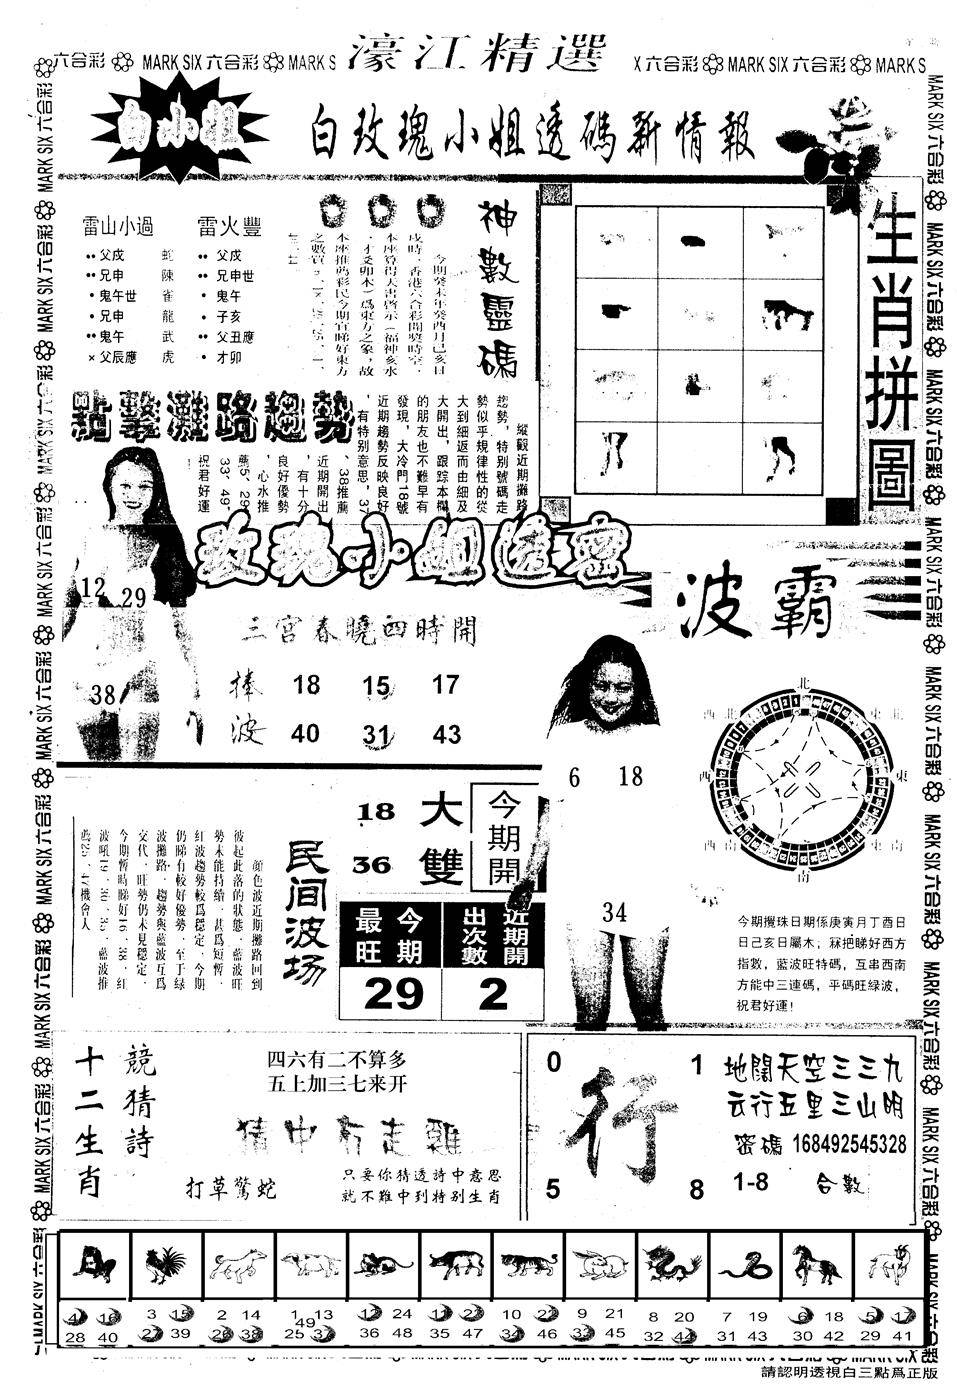 濠江精選
六合彩 MARK SIX 六合彩 MARK S
X 六合彩 MARK SIX 六合彩 MARK S
白小姐
白玫瑰小姐透碼新情報
雷山小過
父戌 蛇
兄申 陳
鬼午世 雀
兄申 龍
鬼午 武
父辰應 虎
雷火豐
父戌
兄申世
鬼午
子亥
父丑應
才卯
神數靈碼
今期癸未年癸酉月己亥日
戌時，香港六合彩開獎時空，
本座算得天書啓示（福神亥水
，才爻卯木）爲東方之象，故
本座推薦彩民今期宜睇好東方
生肖拼圖
點擊灘路趨勢
縱觀近期攤路
趨勢，特别號碼走
勢似乎規律性的從
大到細返而由細及
大開出，跟踪本欄
的朋友也不難早有
發現，大冷門18號
近期趨勢反映良好
，有特别意思，37
、38推薦
近期開出
，有十分
良好優勢
，心水推
薦5、29、
33、49，
祝君好運
玫瑰小姐透密
12 29
38
三宮春曉四時開
捧 18 15 17
波 40 31 43
波霸
6 18
34
北
東北
東
東南
南
西南
西
西北
今期攪珠日期係庚寅月丁酉日
日己亥日屬木，冧把睇好西方
指數，藍波旺特碼，互串西南
方能中三連碼，平碼旺緑波，
祝君好運！
顔色波近期攤路回到
彼起此落的狀態，藍波旺
勢未能持續，甚爲短暫，
红波趨勢較爲穩定，今期
仍睇有較好優勢，至于緑
波攤路，趨勢與藍波互爲
交代，旺勢仍未見穩定，
今期暫時睇好16、38，红
波吼19、30、35，藍波推
薦25、47機會人
民间波场
18 大
36 雙
今期開
今期最旺
29
近期開出次數
2
十二生肖
競猜詩
四六有二不算多
五上加三七来开
猜中有走雞
打草驚蛇
只要你猜透詩中意思
就不難中到特别生肖
0 1
行
5 8
地闊天空三三九
云行五里三山明
密碼 168492545328
1-8 合數
4 16 28 40
3 15 27 39
2 14 26 38
1 13 25 37 49
12 24 36 48
11 23 35 47
10 22 34 46
9 21 33 45
8 20 32 44
7 19 31 43
6 18 30 42
5 17 29 41
請認明透視白三點爲正版